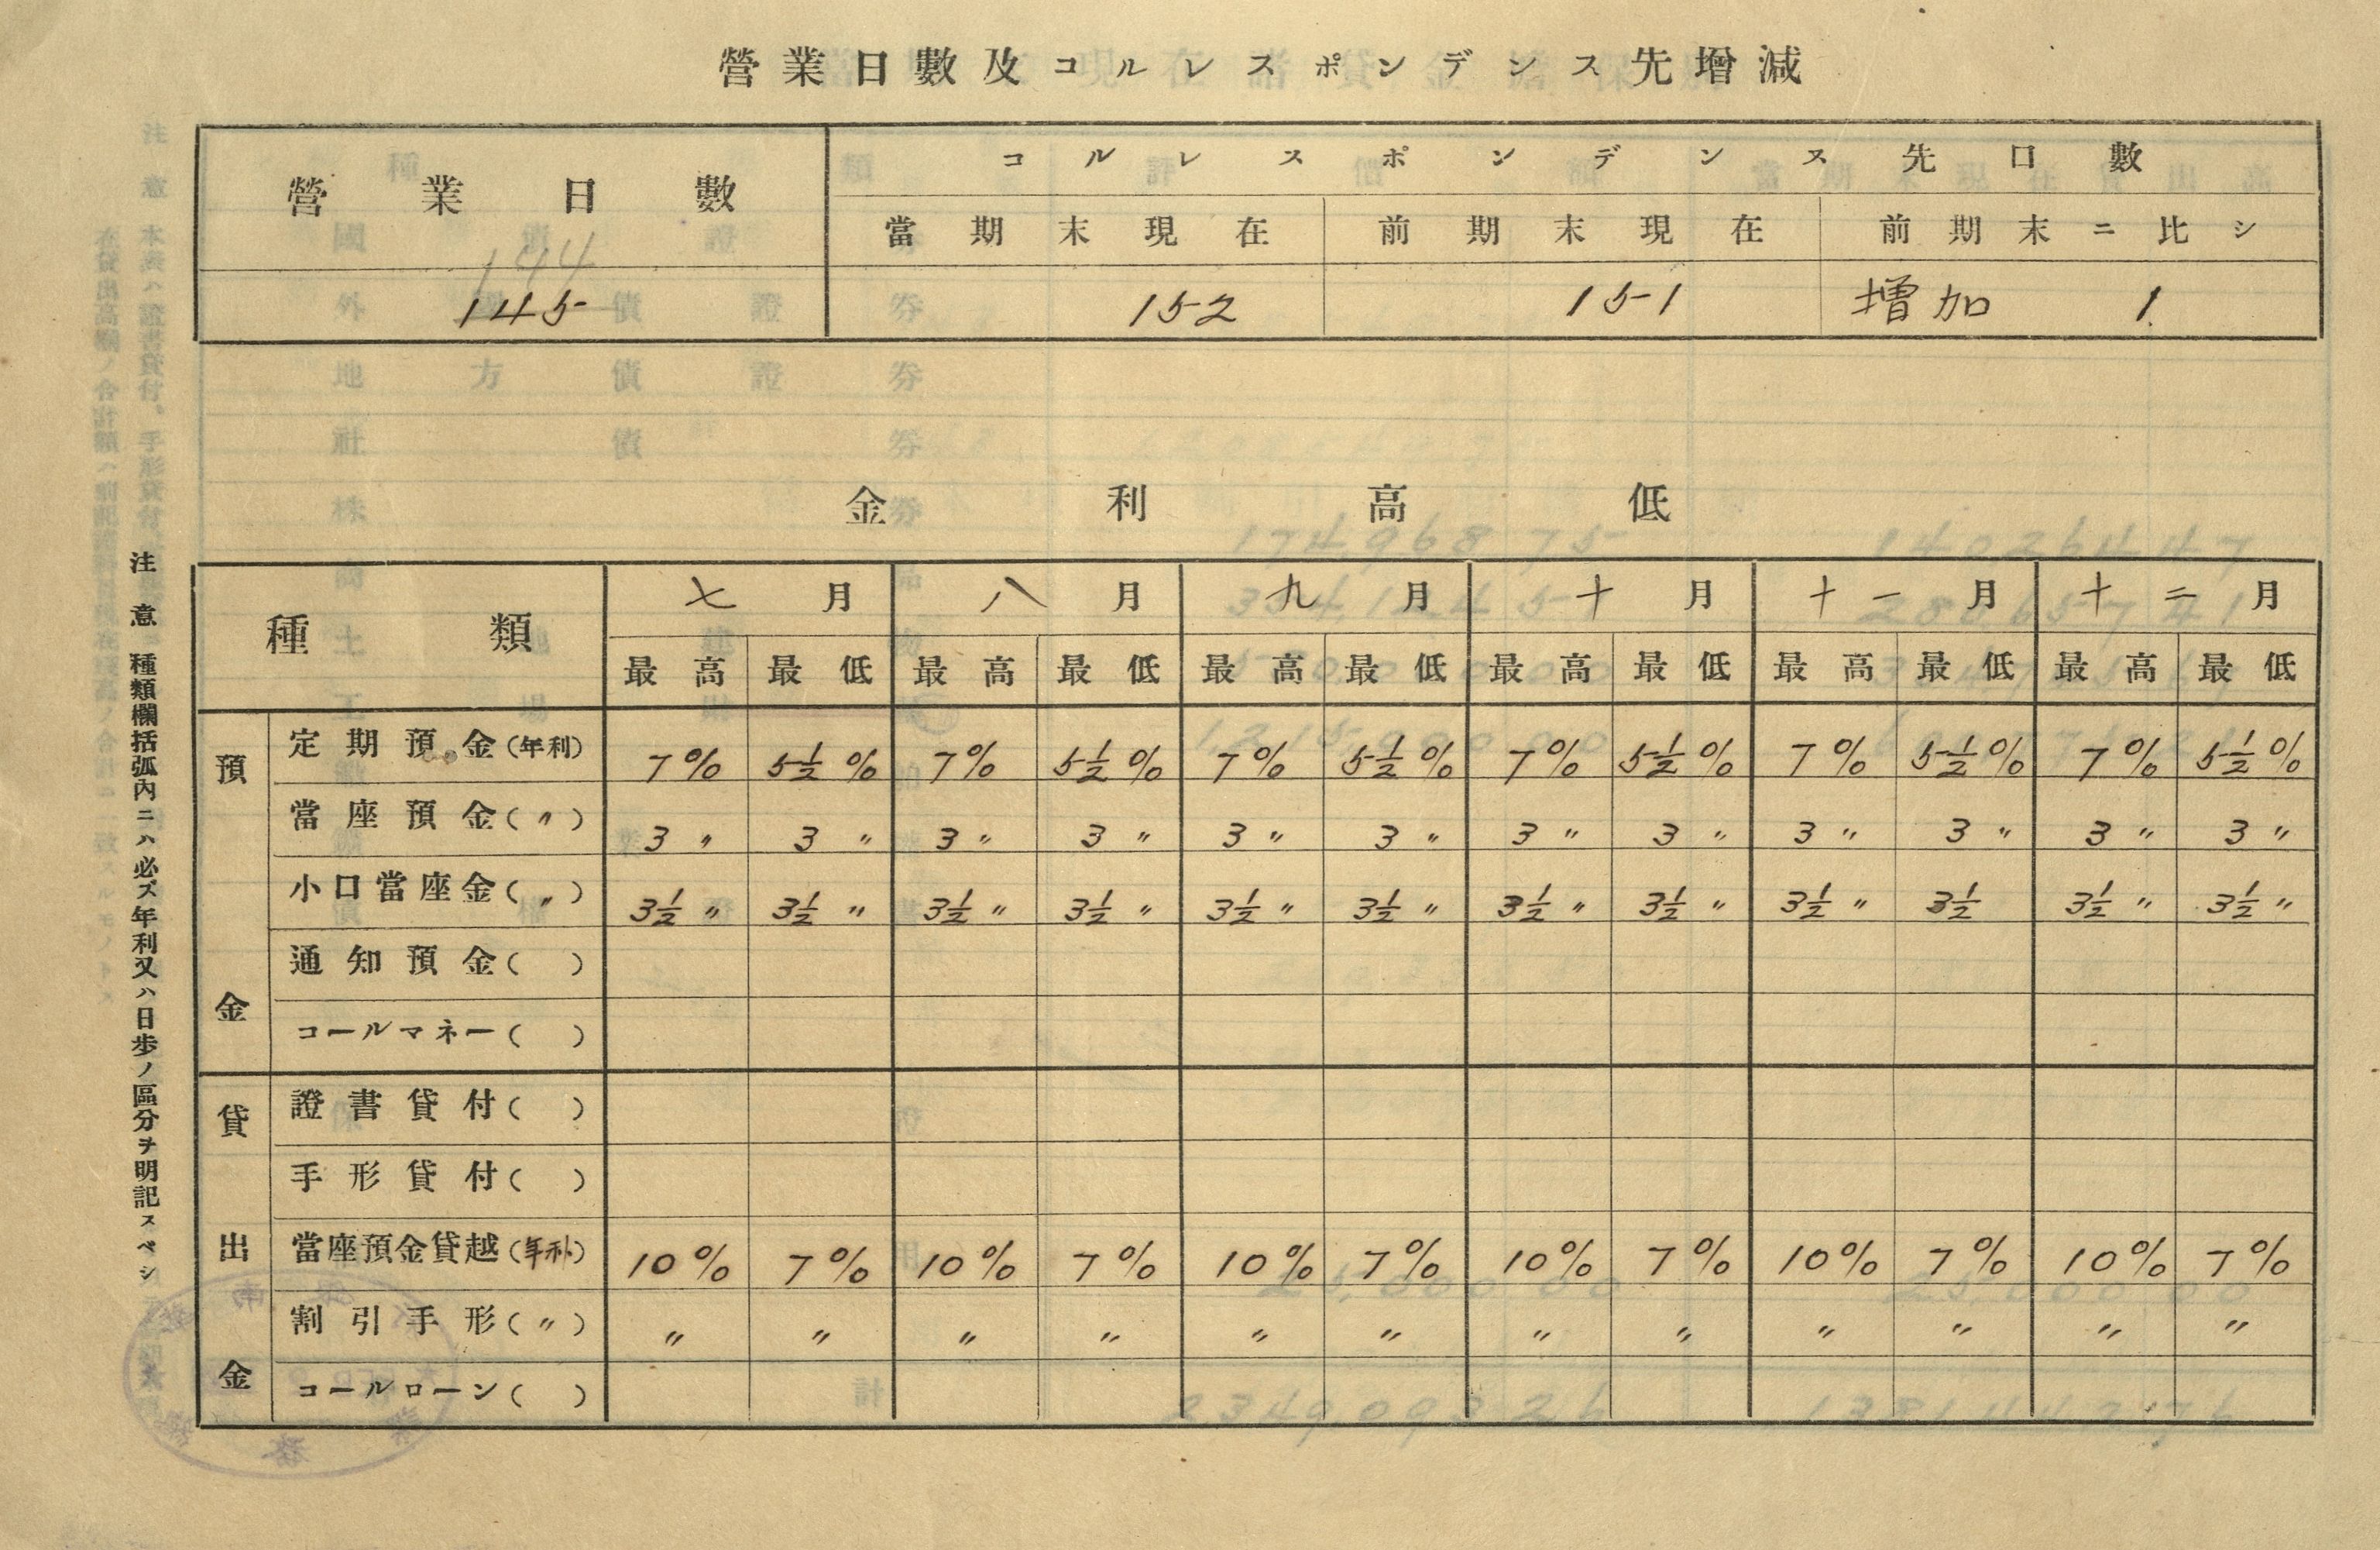 營業日數及コルレスポンデンス先增減
營業日數 コルレスポンデンス先口數
當期末現在 前期末現在 前期末ニ比シ
144
145 152 151 增加 1
金利高低
種類 七月 八月 九月 十月 十一月 十二月
最高 最低 最高 最低 最高 最低 最高 最低 最高 最低 最高 最低
預金
定期預金(年利) 7% 5½% 7% 5½% 7% 5½% 7% 5½% 7% 5½% 7% 5½%
當座預金(〃) 3〃 3〃 3〃 3〃 3〃 3〃 3〃 3〃 3〃 3〃 3〃 3〃
小口當座金(〃) 3½〃 3½〃 3½〃 3½〃 3½〃 3½〃 3½〃 3½〃 3½〃 3½ 3½〃 3½〃
通知預金( )
コールマネー( )
貸出金
證書貸付( )
手形貸付( )
當座預金貸越(年利) 10% 7% 10% 7% 10% 7% 10% 7% 10% 7% 10% 7%
割引手形(〃) 〃 〃 〃 〃 〃 〃 〃 〃 〃 〃 〃 〃
コールローン( )
注意 種類欄括弧內ニハ必ズ年利又ハ日步ノ區分ヲ明記スベシ